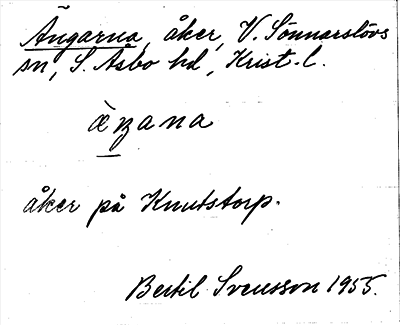 Ängarna, åker, V. Sönnarslövs
sn, S. Åsbo hd, Krist. l.
àŋana
åker på Knutstorp.
Bertil Svensson 1955.